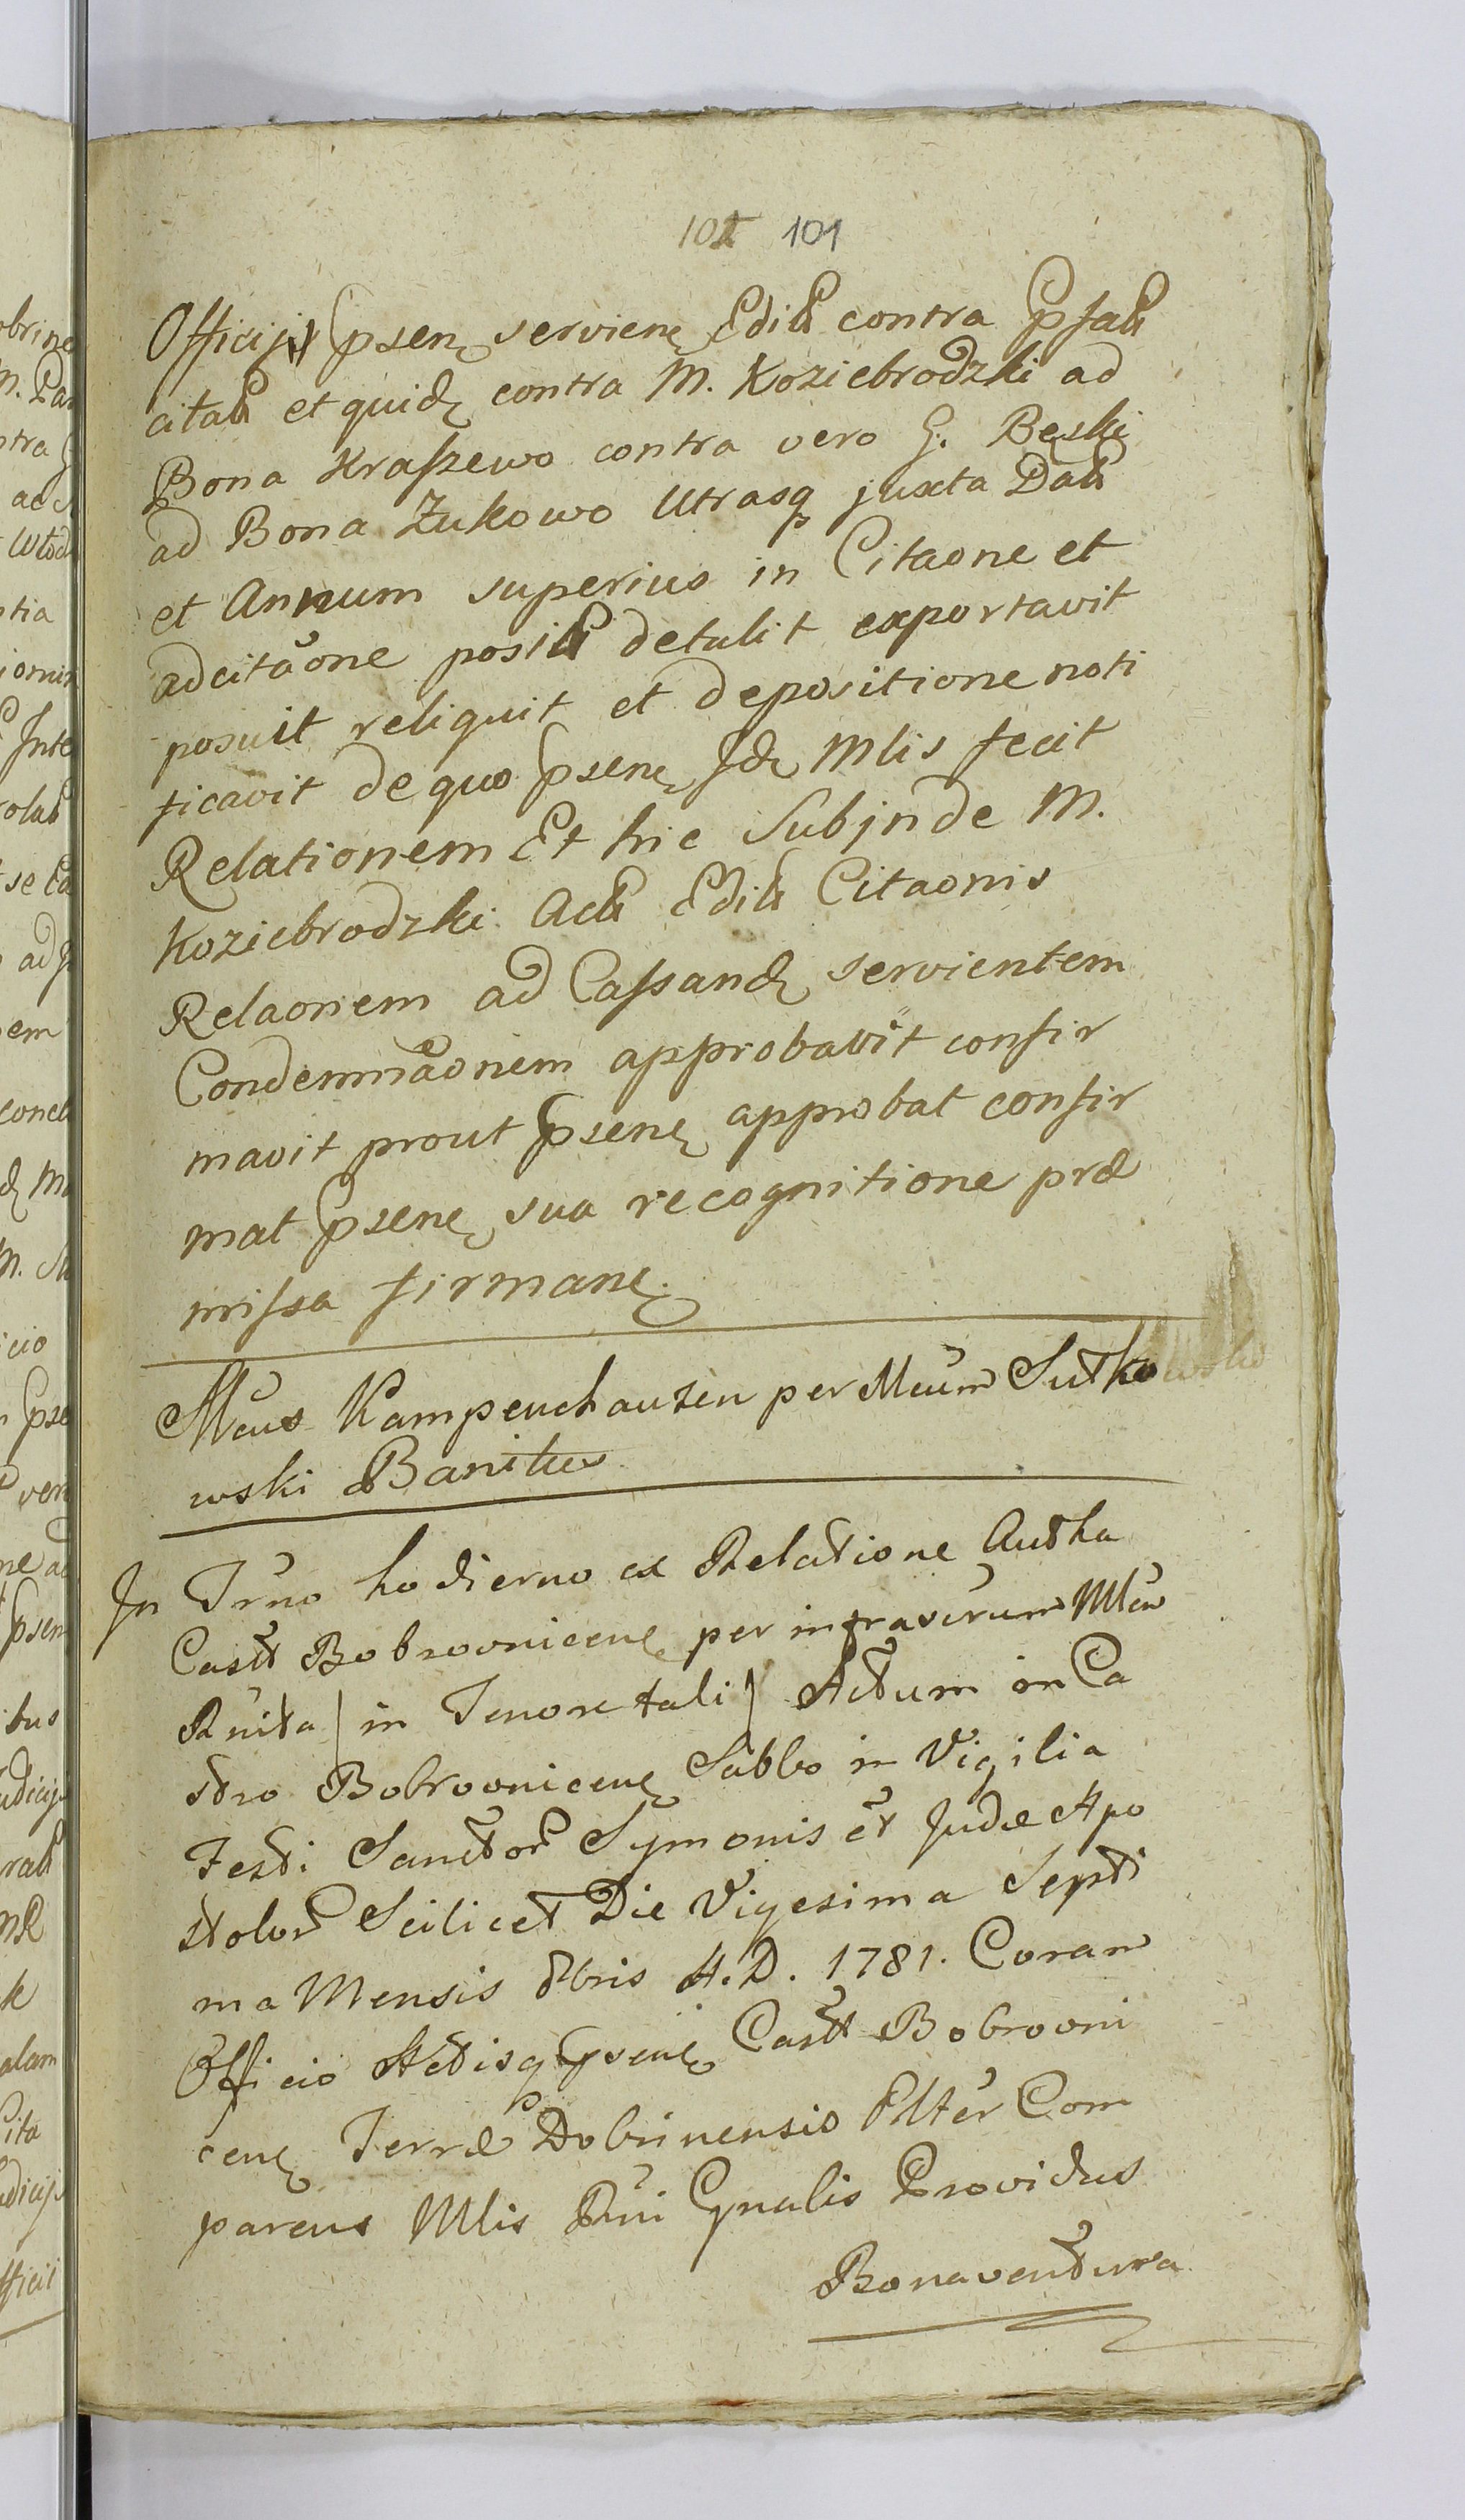 101 101
Officij psen serviene Edit contra Psat
citat et quid contra M. Koziebrodzki ad
Bona Kraszewo contra vero G. Beski
ad Bona Żukowo Utrasq juxta Dat
et Annum superius in Citaone et
adcitaone posit detulit exportavit
posuit reliquit et depositione noti
ficavit de quo psene Id Mlis fecit
Relationem Et hic Subjnde M.
Koziebrodzki Act Edit Citaonis
Relaonem ad Cassand servientem
Condemnaonem approbavit confir
mavit prout psene approbat confir
mat psene sua recognitione præ
missa firmane.
Mcus Kampenchauzen per Mcum Sutko
wski Banitus
In Trno hodierno ex Relatione Autha
Castt Bobrovnicene per infrascrum Mlem
Rnita / in Tenore tali / Actum in Ca
stro Bobrovnicene Sabbo in Vigilia
Festi Sanctor Symonis et Judæ Apo
stolor Scilicet Die Vigesima Septi
ma Mensis 8bris A.D. 1781. Coram
Officio Actisq psene Castt Bobrovni
cene Terræ Dobrinensis Plter Com
parens Mlis Rni Gnalis Providus
Bonaventura